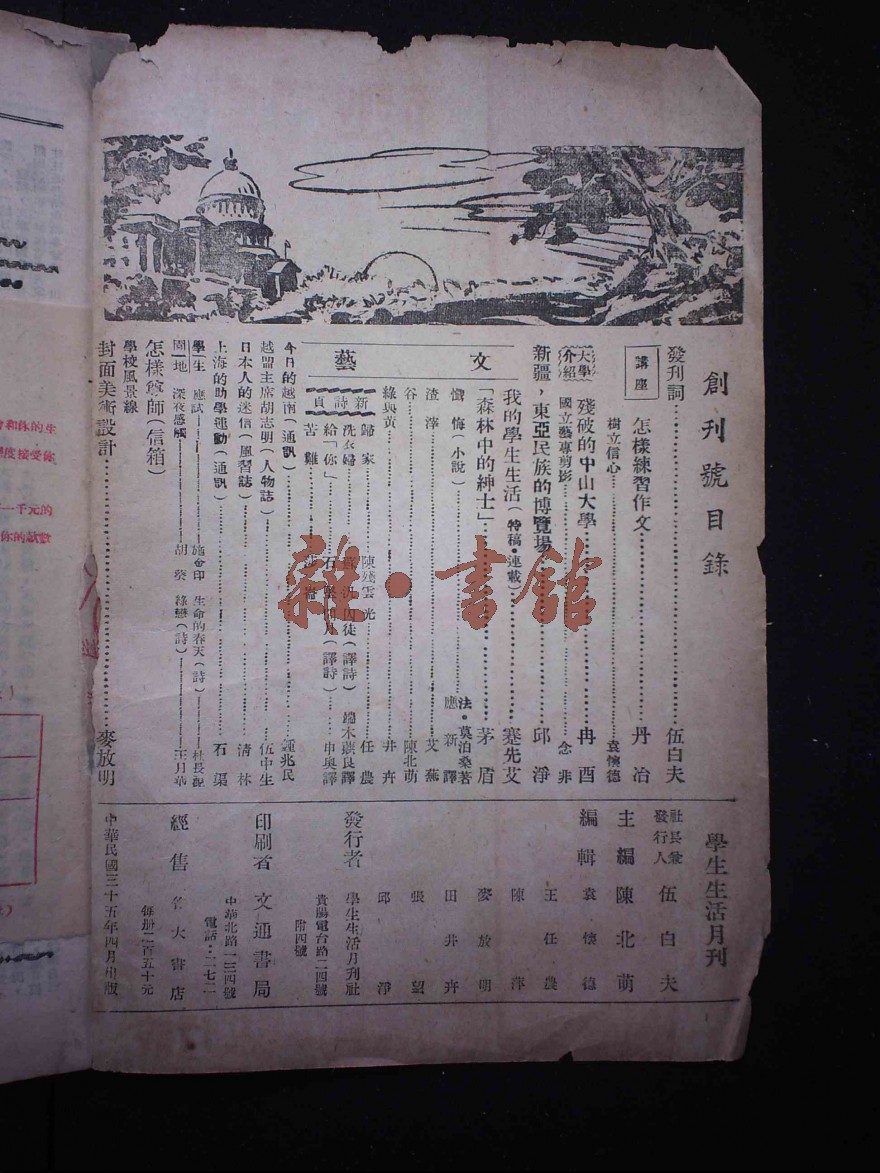 創刊號目錄
發刊詞 伍白夫
講座
怎樣練習作文 丹冶
樹立信心 袁懷德
大學介紹
殘破的中山大學 冉酉
國立藝專剪影 念非
新疆，東亞民族的博覽場 邱淨
我的學生生活（特稿•連載） 蹇先艾
文藝
「森林中的紳士」 茅盾
懺悔（小說） 法•莫泊桑著 應新譯
渣滓 艾蕪
谷 陳北萌
綠與黃 井卉
新詩頁
歸家 陳殘雲
光 任農
洗衣婦
囚徒（譯詩） 端木蕻良譯
給「你」 石
月（譯詩） 申奧譯
苦難
今日的越南（通訊） 鍾兆民
越盟主席胡志明（人物誌） 伍中生
日本人的迷信（風習誌） 清林
上海的助學運動（通訊） 石渠
學生園地
應試 施命印
生命的春天（詩）
深夜感觸 胡
綠戀（詩） 王月華
怎樣尊師（信箱）
學校風景線
封面美術設計 麥放明
學生生活月刊
社長兼發行人 伍白夫
主編 陳北萌
編輯 袁懷德
王任農
陳萍
麥放明
田井卉
張望
邱淨
發行者 學生生活月刊社
貴陽電台路二四號
附四號
印刷者 文通書局
中華北路一三四號
電話：二七二
經售 各大書店
每册二百五十元
中華民國三十五年四月出版
雜•書館
會和你的生
度接受你
一千元的
你的試數